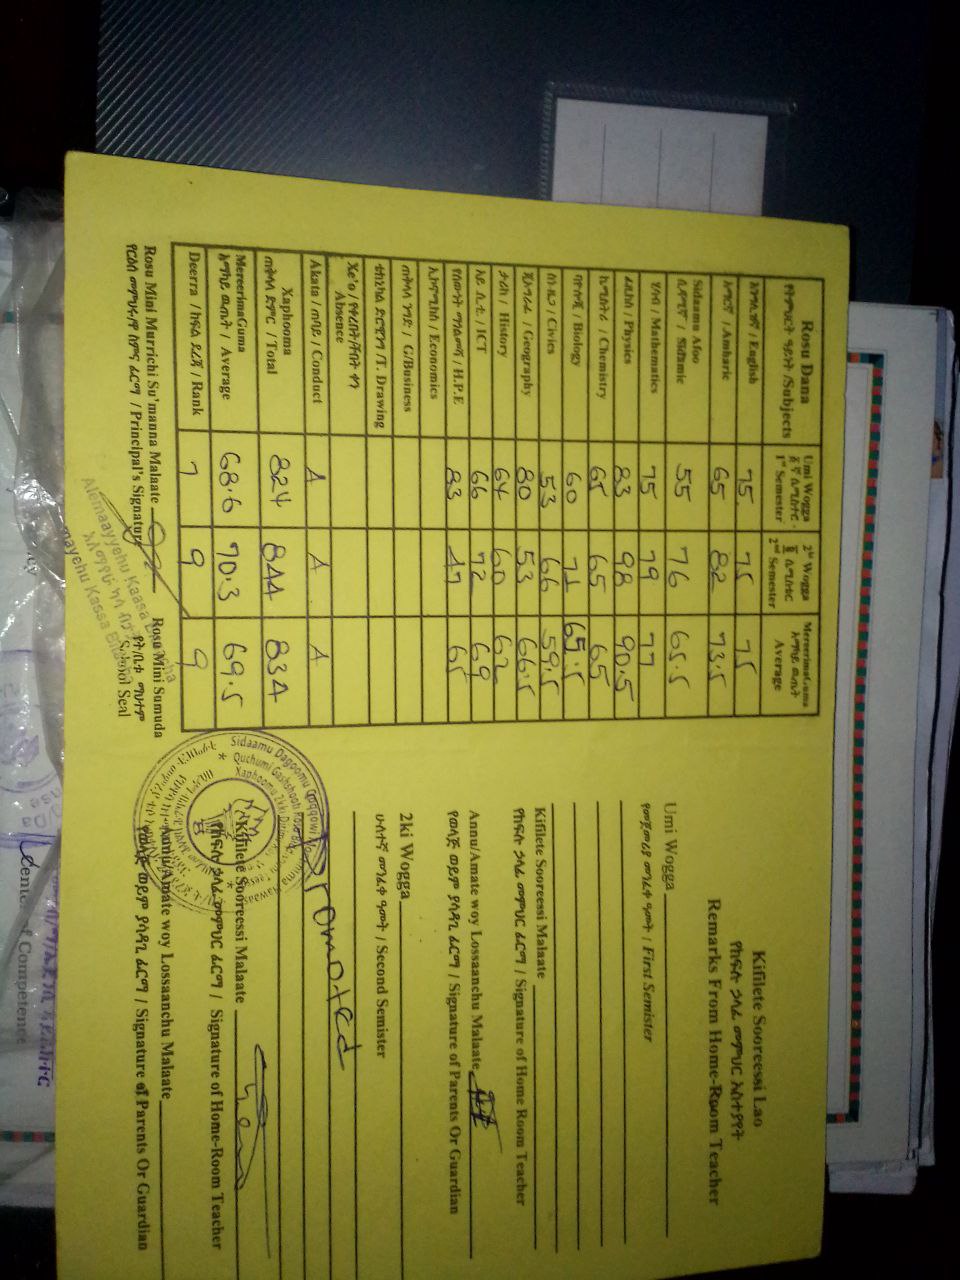 Rosu Dana
የትምህርት ዓይነት /Subjects
Umi Wogga
1st Semester
2ki Wogga
2nd Semester
MereerimaGuma
አማካይ ውጤት
Average
እንግሊዝኛ / English 75 75 75
አማርኛ / Amharic 65 82 73.5
Sidaamu Afoo
ሲዳምኛ / Sidamic 55 76 65.5
ሂሳብ / Mathematics 75 79 77
ፊዚክስ / Physics 83 98 90.5
ኬሚስትሪ / Chemistry 65 65 65
ባዮሎጂ / Biology 60 71 65.5
ስነ ዜጋ / Civics 53 66 59.5
ጂኦግራፊ / Geography 80 53 66.5
ታሪክ / History 64 60 62
አይ ሲ ቲ / ICT 66 72 69
የሰውነት ማጎልመሻ / H.P.E 83 47 65
ኢኮኖሚክስ / Economics
ጠቅላላ ንግድ / G/Business
ቴክኒካል ድሮዊንግ /T. Drawing
Xe'o / የቀረበት/ችበት ቀን
Absence
Akata / ጠባይ / Conduct A A A
Xaphooma
ጠቅላላ ድምር / Total 824 844 834
MereerimaGuma
አማካይ ውጤት / Average 68.6 70.3 69.5
Deerra /ከፍል ደረጃ / Rank 7 9 9
Rosu Mini Murrichi Su'manna Malaate
የርዕሰ መምህሩ/ሯ ስምና ፊርማ / Principal's Signature
Rosu Mini Sumuda
የት/ቤቱ ማህተም
School Seal
Kifilete Sooreessi Lao
የክፍሉ ኃላፊ መምህር አስተያየት
Remarks From Home-Room Teacher
Umi Wogga
የመጀመሪያ መንፈቀ ዓመት / First Semister
Kifilete Sooreessi Malaate
የክፍሉ ኃላፊ መምህር ፊርማ / Signature of Home Room Teacher
Annu/Amate woy Lossaanchu Malaate
የወላጅ ወይም ያሳዳጊ ፊርማ / Signature of Parents Or Guardian
2ki Wogga
ሁለተኛ መንፈቀ ዓመት / Second Semister
Promoted
Kifilete Sooreessi Malaate
የክፍሉ ኃላፊ መምህር ፊርማ / Signature of Home-Room Teacher
Annu/Amate woy Lossaanchu Malaate
የወላጅ ወይም ያሳዳጊ ፊርማ / Signature of Parents Or Guardian